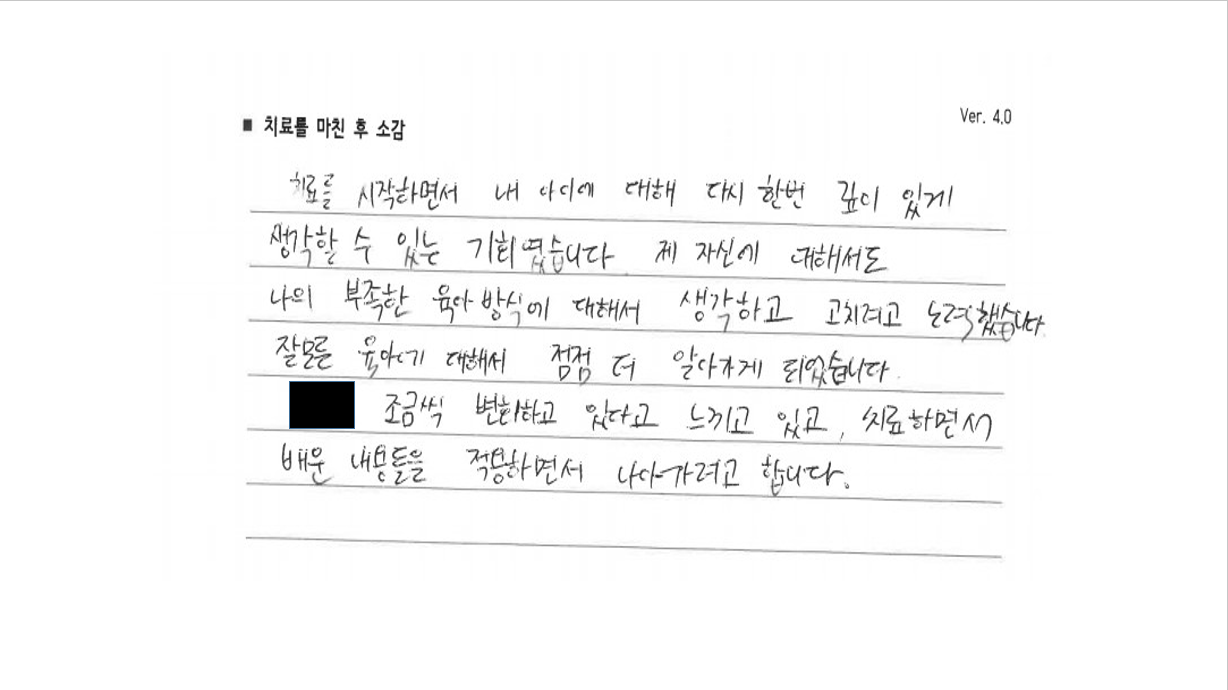 Ver. 4.0
■ 치료를 마친 후 소감
치료를 시작하면서 내 아이에 대해 다시 한번 깊이 있게
생각할 수 있는 기회였습니다. 제 자신에 대해서도
나의 부족한 육아 방식에 대해서 생각하고 고치려고 노력했습니다.
잘모를 육아기 대해서 점점 더 알아가게 되었습니다.
조금씩 변화하고 있다고 느끼고 있고, 치료하면서
배운 내용들을 적용하면서 나아가려고 합니다.